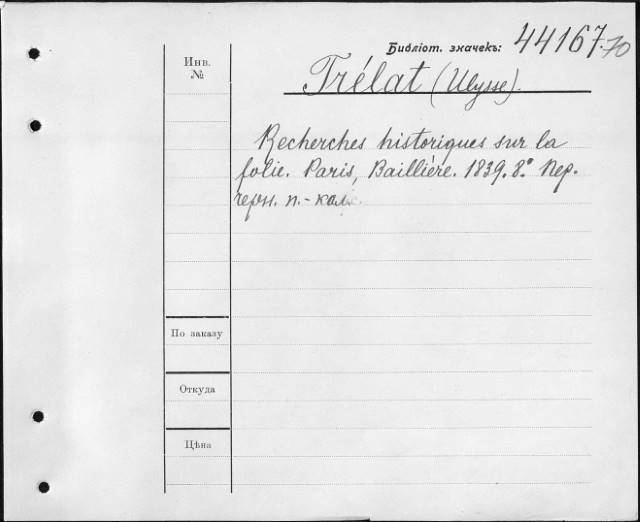 Библіот. значекъ: 44167.70
Инв.
№
Trélat (Ulysse).
Recherches historiques sur la
folie. Paris, Baillière. 1839. 8º Пер.
черн. п.-кал.
По заказу
Откуда
Цѣна